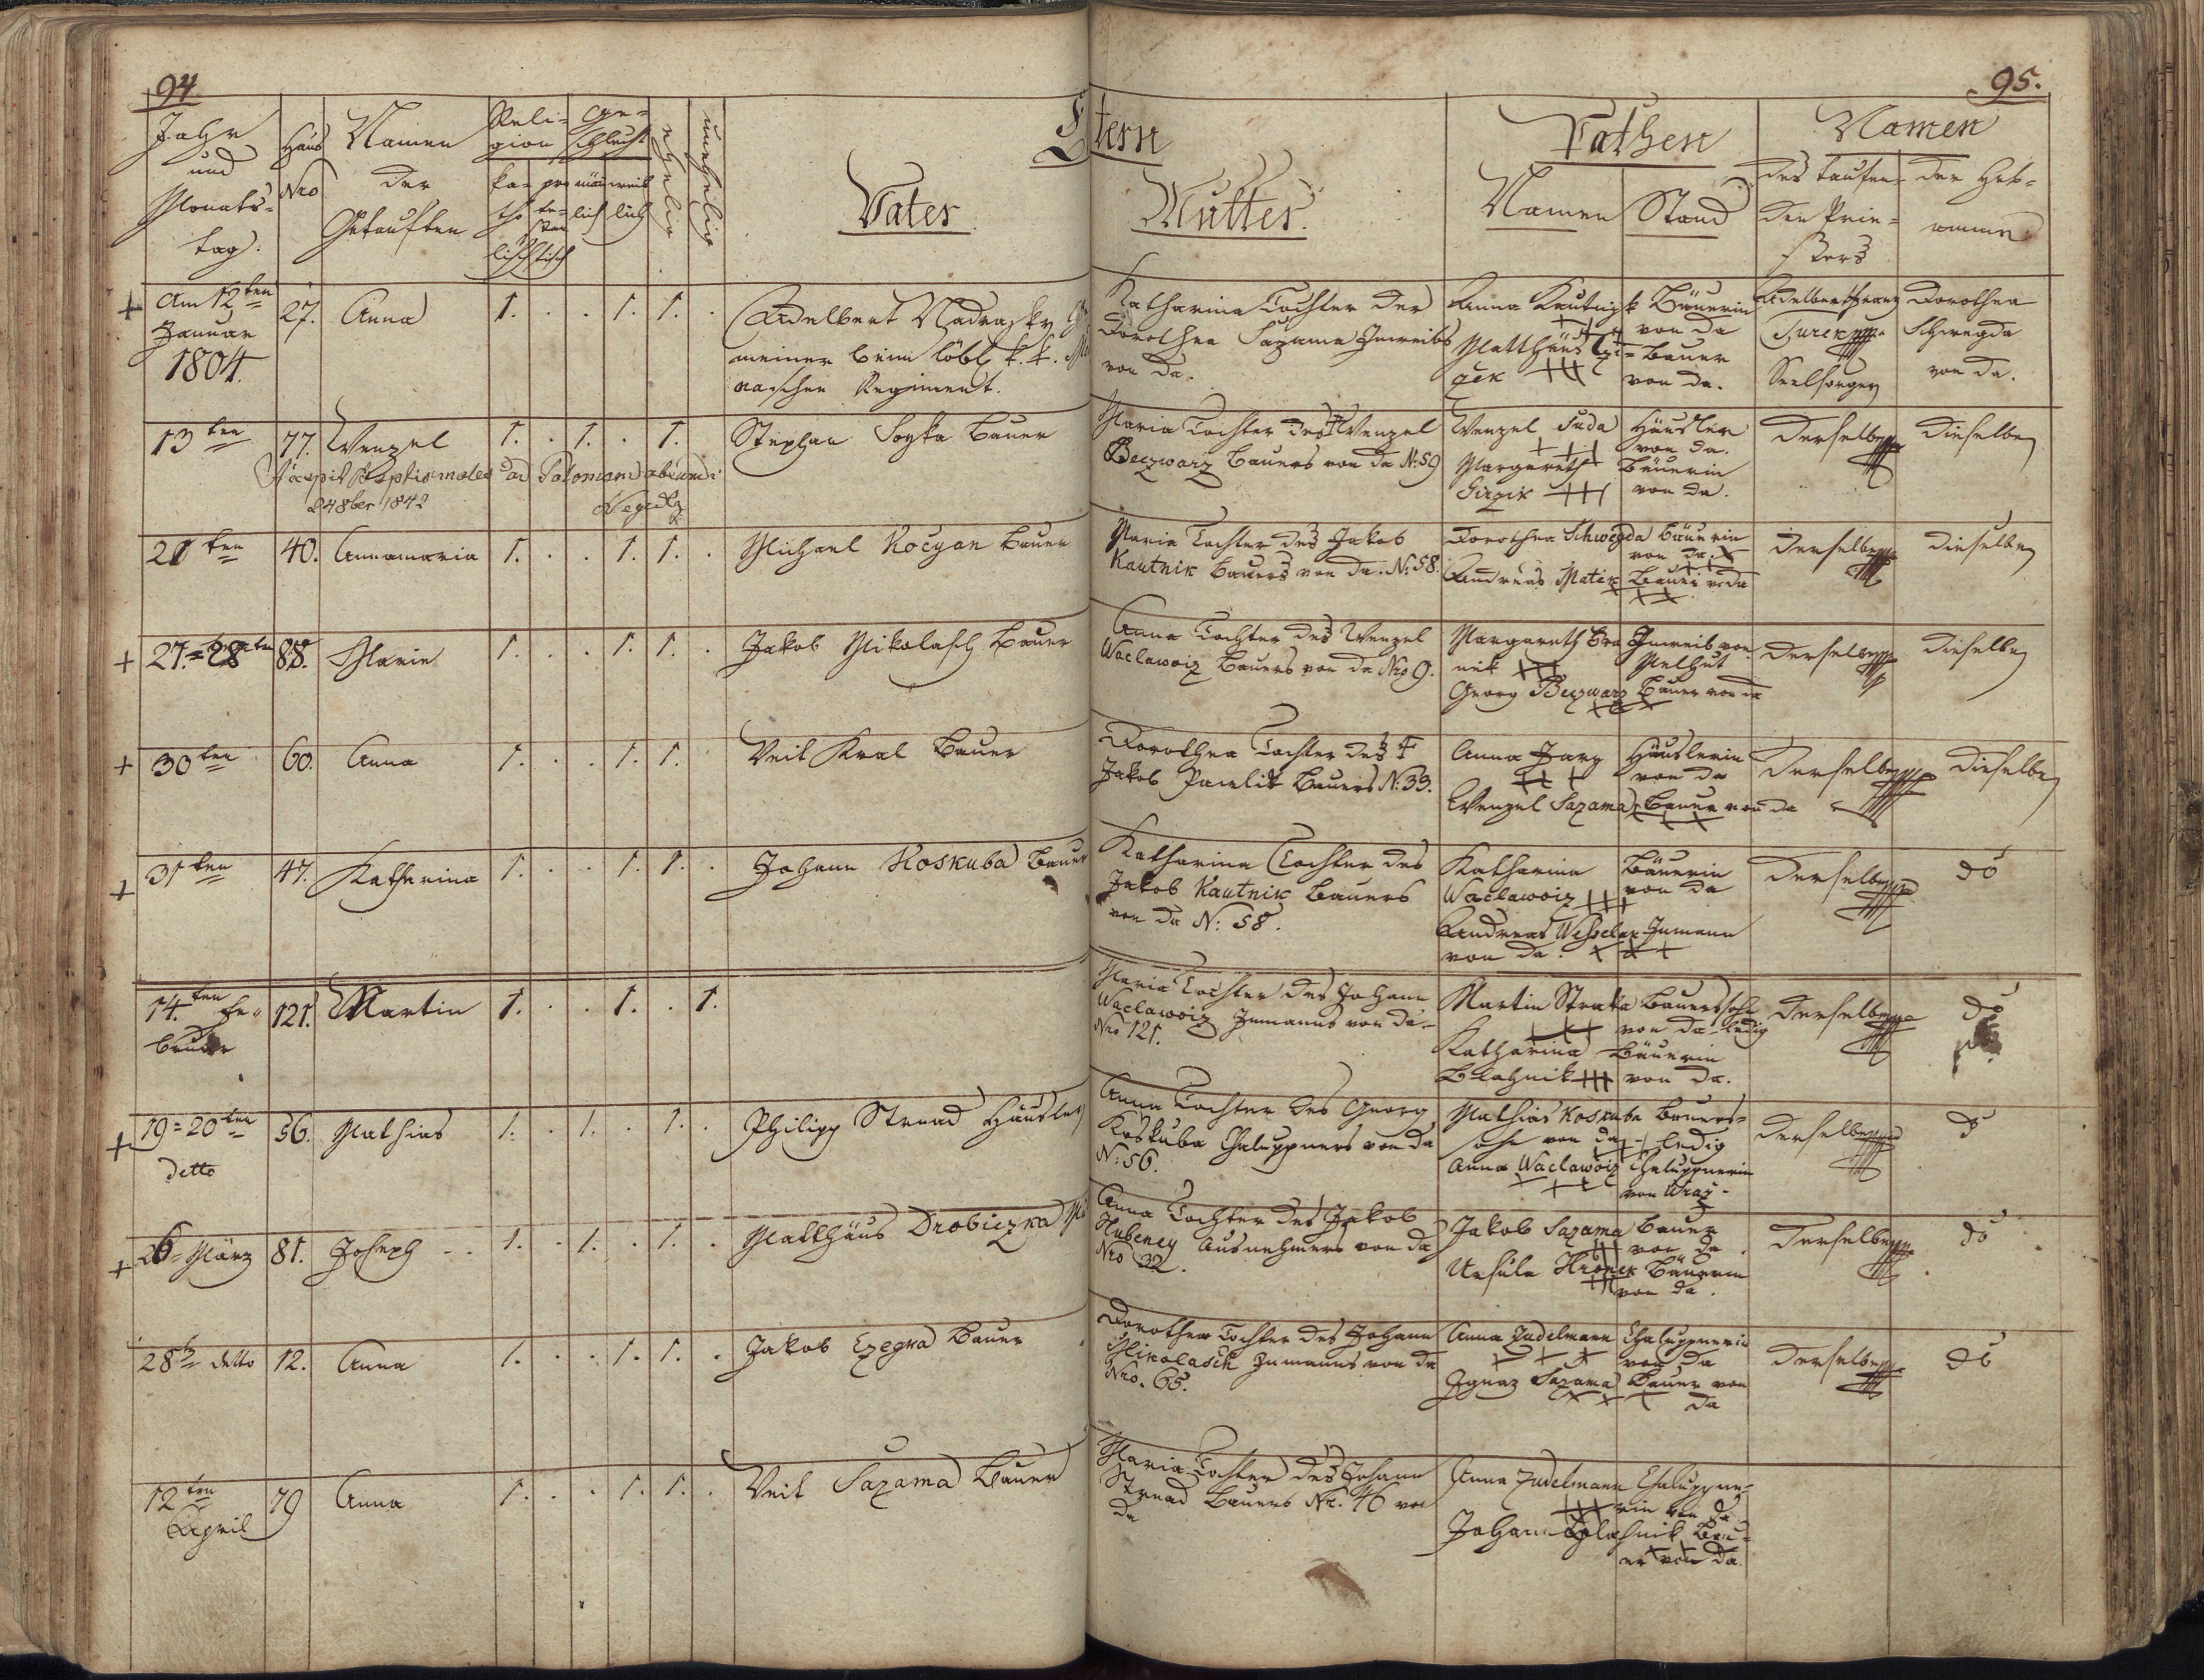 94.
95.
Jahr und Monats-tag.
Haus Nro
Namen der Getauften
Reli-gion
ka-tho-lisch
pro-te-stan-tisch
Ge-schlecht
män-lich
weib-lich
ehelig
unehelig
Eltern
Vater
Mutter.
Pathen
Namen
Stand
Namen
des taufen-den Prie-sters
der Heb-amme
+ Am 12ten Januar 1804. 27. Anna 1. . . 1. 1. .
Adelbert Nadrasky
meiner beim löbl. k. k.
naschen Regiment.
Katharina Tochter der
Dorothea Sazama Inweibs
von da.
Anna Kautnik Bäuerin
von da
+++
Matthäus
+++ Bauer
von da.
Adelbert Franz
Turek
Seelsorger
Dorothea
Schwegda
von da.
13ten 77. Wenzel 1. . 1. . 1.
24 8ber 1842
Stephan Soyka Bauer
Maria Tochter des † Wenzel
Beczwarz Bauers von da N: 59
Wenzel Suda Häusler
+++ von da.
Margareth Bäuerin
+++ von da.
Derselbe
Dieselbe
21ten 40. Annamaria 1. . . 1. 1. .
Michael Kocyan Bauer
Maria Tochter des Jakob
Kautnik Bauers von da. N: 58.
Dorothea Schwegda Bäuerin
von da
+++
Andreas Matik Bauer v. da
+++
Derselbe
Dieselbe
+ 27.=28ten 88. Marie 1. . . 1. 1. .
Jakob Mikolasch Bauer
Anna Tochter des Wenzel
Waclawoiz Bauers von da Nro 9.
Margareth Bra- Inweib von
nik +++ Melhut
Georg Beczwarz Bauer von da
+++
Derselbe
Dieselbe
+ 30ten 60. Anna 1. . . 1. 1.
Veit Kral Bauer
Dorothea Tochter des †
Jakob Pawlik Bauers N: 33.
Anna Jary Häuslerin
+++ von da
Wenzel Sazama Bauer von da
+++
Derselbe
Dieselbe
+ 31ten 47. Katharina 1. . . 1. 1. .
Johann Koskuba Bauer
Katharina Tochter des
Jakob Kautnik Bauers
von da N: 58.
Katharina Bäuerin
Waclawoiz +++ von da
Andreas Wesselak Inmann
von da. +++
Derselbe
do
14.ten Fe-bruar 121. Martin 1. . . 1. . 1.
Maria Tochter des Johann
Waclawoiz Inmanns von da
Nro 121.
Martin Straka Bauerssohn
+++ von da ledig
Katharina Bäuerin
Blahnik +++ von da.
Derselbe
do
+ 19=20ten detto 56. Mathias 1. . 1. . 1. .
Philipp Strnad Häusler
Anna Tochter des Georg
Koskuba Chaluppners von da
N: 56.
Mathias Koskuba Bauers-
sohn von da +++ ledig
Anna Waclawoiz Chaluppnerin
+++ von Wraz
Derselbe
do
+ 26= März 81. Joseph 1. . 1. . 1. .
Matthäus Drobiczka
Anna Tochter des Jakob
Hubeney Ausnehmers von da
Nro 32.
Jakob Sazama Bauer
+++ von da
Ursula Hronek Bäuerin
+++ von da.
Derselbe
do
28t detto 12. Anna 1. . . 1. 1. .
Jakob Czegra Bauer
Dorothea Tochter des Johann
Mikolasch Inmanns von da
Nro. 65.
Anna Judelmann Chaluppnerin
+++ von da
Ignaz Sazama Bauer von
+++ da
Derselbe
do
12ten April 79 Anna 1. . . 1. 1. .
Veit Sazama Bauer
Maria Tochter des Johann
Strnad Bauers Nr. 46 von
da
Anna Judelmann Chaluppne-
+++ rin von da
Johann Blahnik Bau-
er von da.